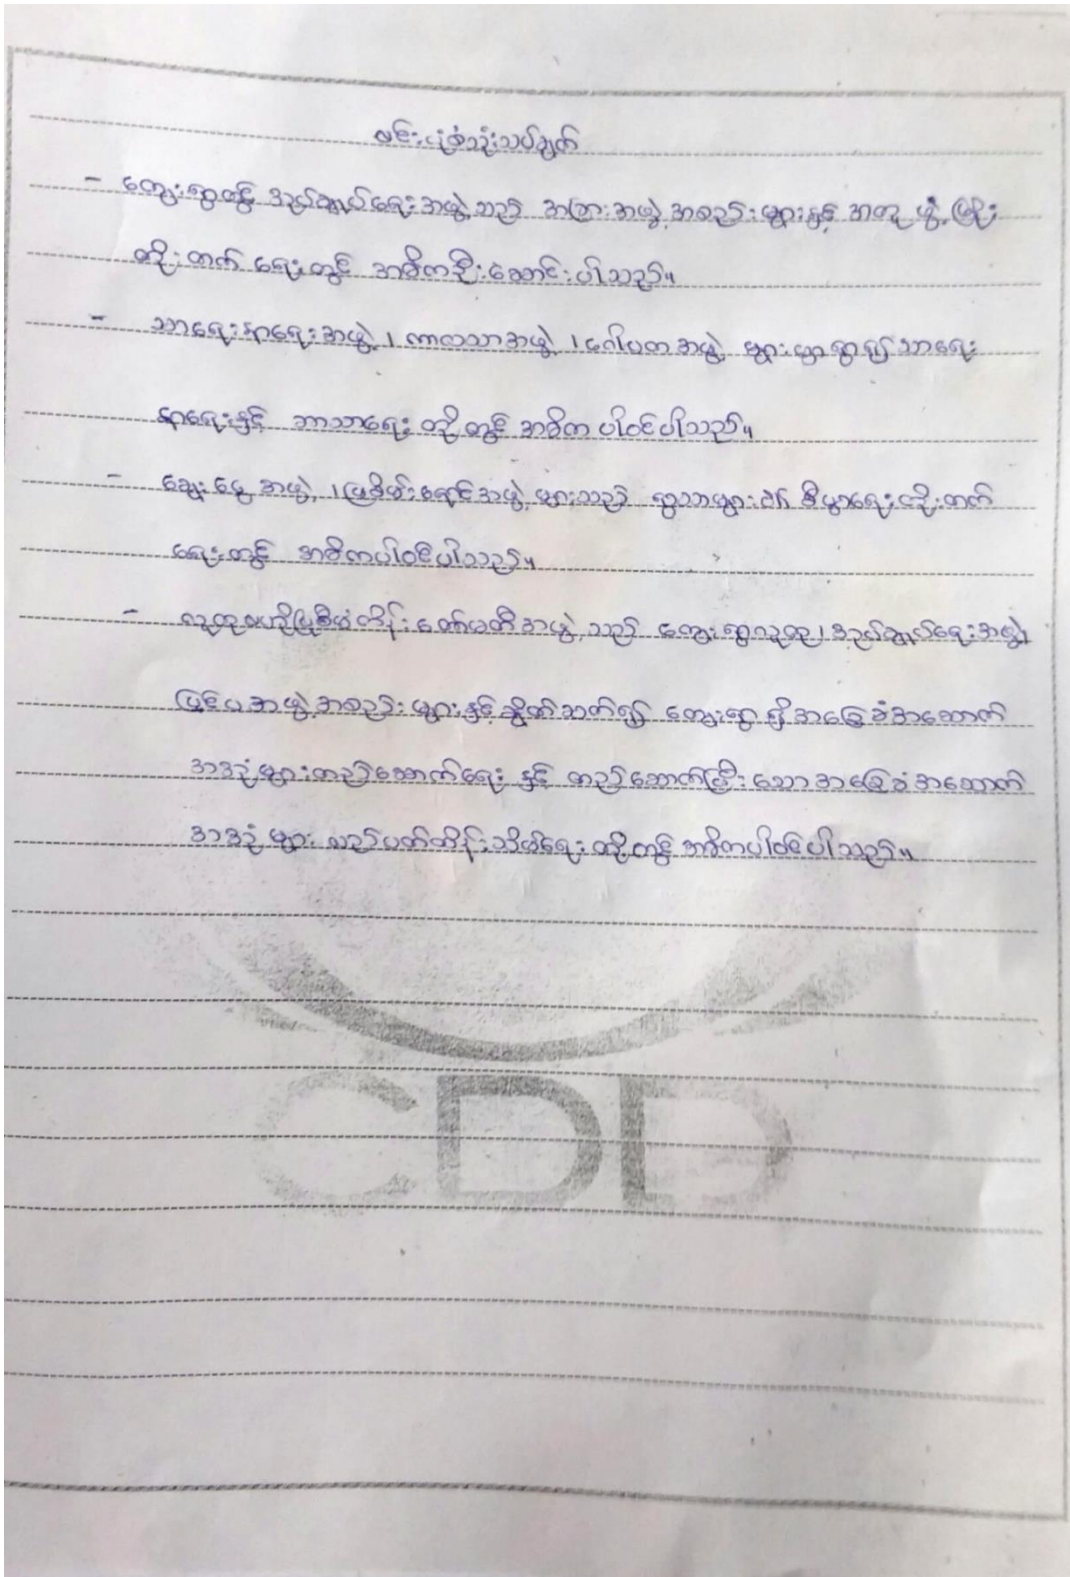 ဗင်းပုံစံသုံးသပ်ချက်
- ကျေးရွာတွင် အုပ်ချုပ်ရေးအဖွဲ့သည် အခြားအဖွဲ့အစည်းများနှင့် အတူ ဖွံ့ဖြိုး
တိုးတက်ရေးတွင် အဓိကဦးဆောင်းပါသည်။
- သာရေးနာရေးအဖွဲ့၊ ကာလသာအဖွဲ့၊ ဂေါပကအဖွဲ့ များမှာ ရွာ၍သာရေး
နာရေးနှင့် ဘာသာရေး တို့တွင် အဓိက ပါဝင်ပါသည်။
- ချေးငွေအဖွဲ့၊ မြစိမ်းရောင်အဖွဲ့များသည် ရွာသားများ၏ စီးပွားရေးတိုးတက်
ရေးတွင် အဓိကပါဝင်ပါသည်။
- လူထုဗဟိုပြုစီမံကိန်း ကော်မတီအဖွဲ့သည် ကျေးရွာလူထု၊ အုပ်ချုပ်ရေးအဖွဲ့၊
ပြင်ပအဖွဲ့အစည်းများနှင့်ချိတ်ဆက်၍ ကျေးရွာရှိအခြေခံအဆောက်
အအုံများတည်ဆောက်ရေးနှင့် တည်ဆောက်ပြီးသောအခြေခံအဆောက်
အအုံများ လည်ပတ်ထိန်းသိမ်းရေးတို့တွင် အဓိကပါဝင်ပါသည်။
CDD